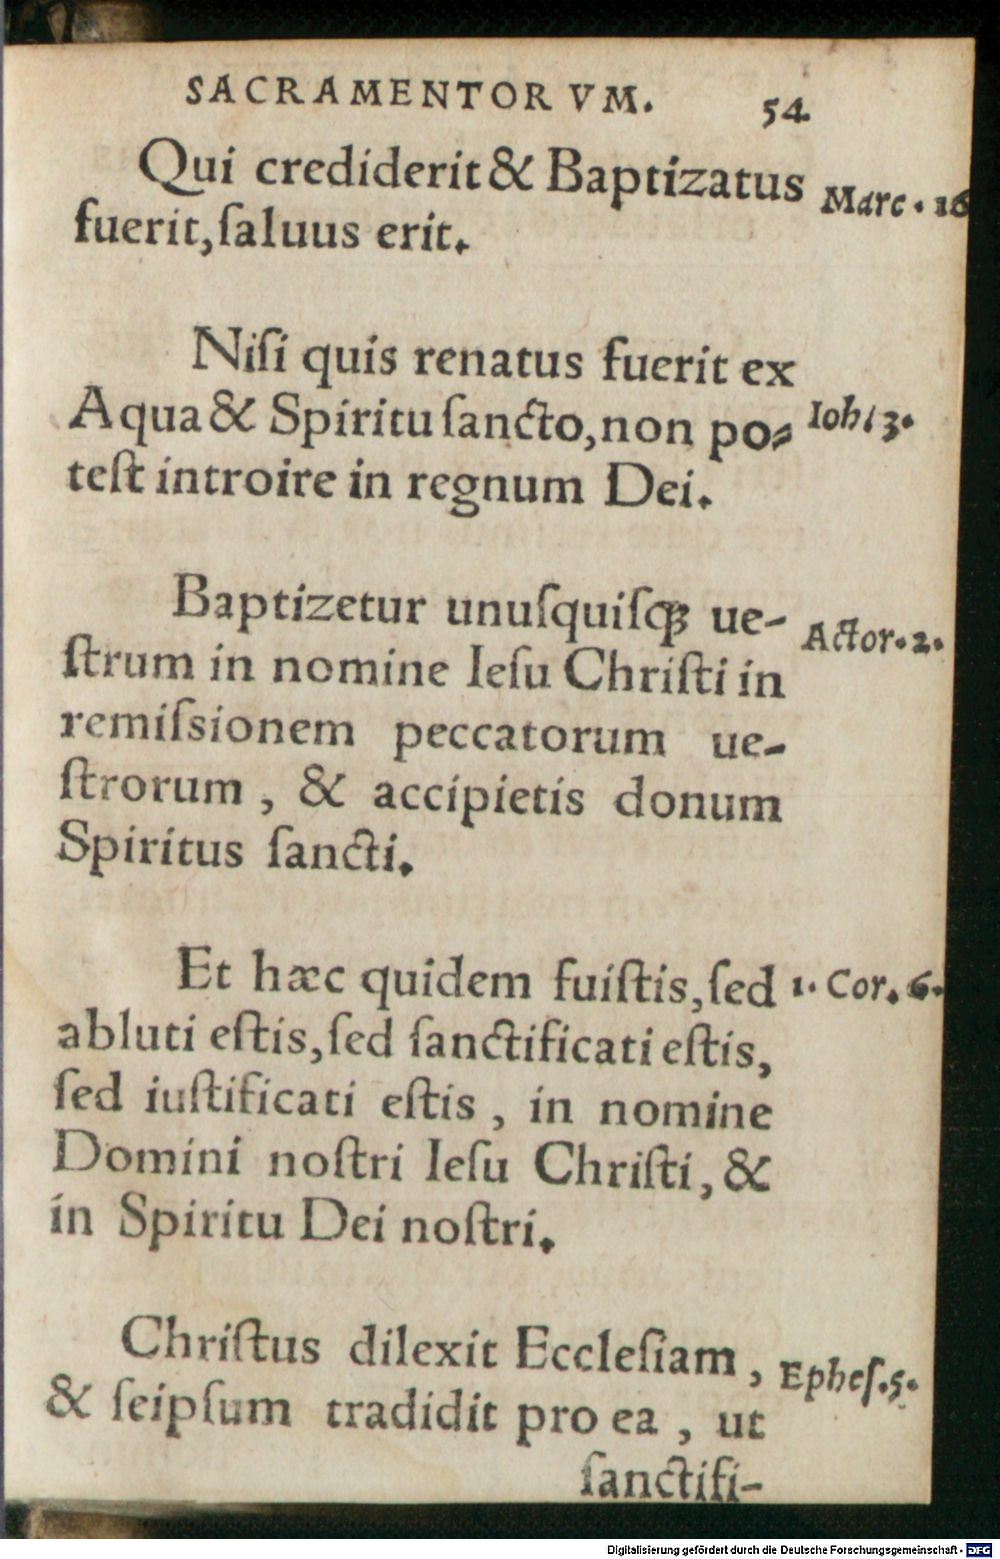 SACRAMENTORVM. 54.
Qui crediderit & Baptizatus Marc. 16
fuerit, ſaluus erit.
Niſi quis renatus fuerit ex
Aqua & Spiritu ſancto, non po⸗ Ioh. 3.
teſt introire in regnum Dei.
Baptizetur unuſquiſqꝫ ue- Actor. 2.
ſtrum in nomine Ieſu Chriſti in
remiſsionem peccatorum ue-
ſtrorum, & accipietis donum
Spiritus ſancti.
Et hæc quidem fuiſtis, ſed 1. Cor. 6.
abluti eſtis, ſed ſanctificati eſtis,
ſed iuſtificati eſtis, in nomine
Domini noſtri Ieſu Chriſti, &
in Spiritu Dei noſtri.
Chriſtus dilexit Eccleſiam, Epheſ. 5.
& ſeipſum tradidit pro ea, ut
ſanctifi-
Digitalisierung gefördert durch die Deutsche Forschungsgemeinschaft - DFG